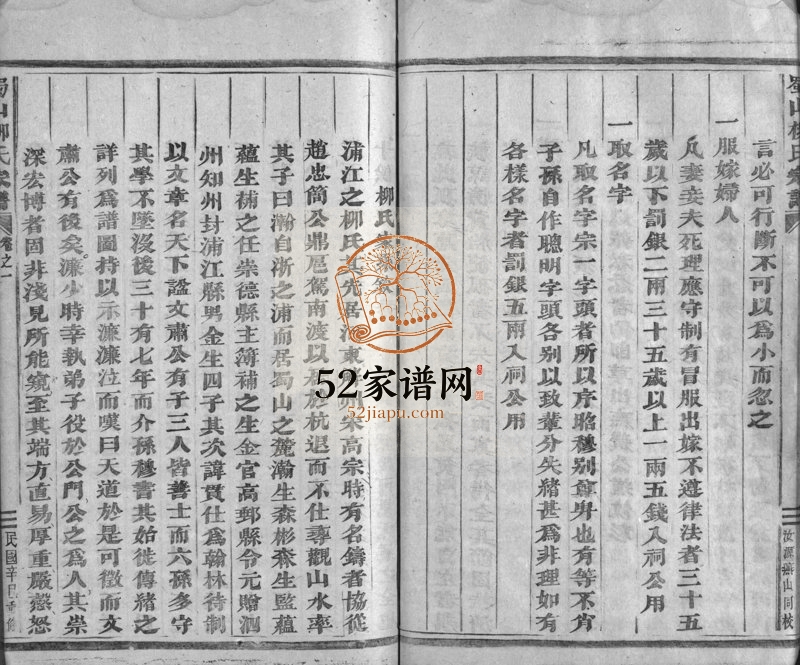 言必可行斷不可以爲小而忽之
一服嫁婦人
凡妻妾夫死理應守制有冒服出嫁不遵律法者三十五
歲以下罰銀二兩三十五歲以上一兩五錢入祠公用
一取名字
凡取名字宗一字頭者所以序昭穆別尊卑也有等不肯
子孫自作聰明字頭各別以致輩分失緒甚爲非理如有
各樣名字者罰銀五兩入祠公用
汝源燕山同校
柳氏
浦江之柳氏其先居河東 宋高宗時有名鑄者協從
趙忠簡公鼎扈駕南渡以 於杭退而不仕尋觀山水率
其子曰瀚自浙之浦而居蜀山之麓瀚生森彬森生監蘊
蘊生補之任崇德縣主簿補之生金官高郵縣令元贈泗
州知州封浦江縣男金生四子其次諱貫仕爲翰林待制
以文章名天下諡文肅公有子三人皆善士而六孫多守
其學不墜沒後三十有七年而介孫穆書其始徙傳緒之
詳列爲譜圖持以示濂濂泣而嘆曰天道於是可徵而文
肅公有後矣濂少時幸執弟子役於公門公之爲人其崇
深宏博者固非淺見所能窺至其端方直易厚重嚴慤恕
蜀山柳氏家譜
卷之一
民國辛巳重修
52家谱网
52jiapu.com